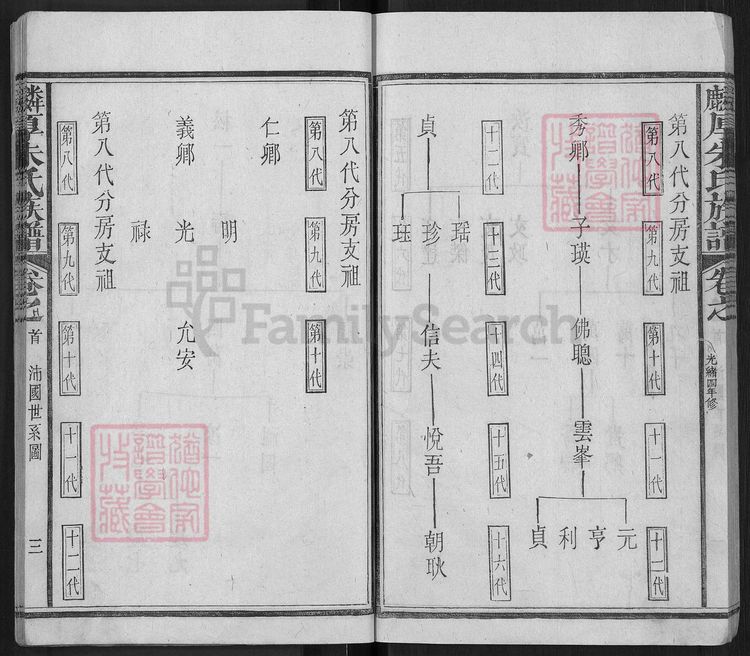 麟厚朱氏族譜
卷之
光緒四年修
第八代分房支祖
第八代
第九代
第十代
十一代
十二代
秀卿
子瑛
佛聰
雲峯
元
亨
利
貞
十二代
十三代
十四代
十五代
十六代
貞
瑤
珍
珏
信夫
悅吾
朝耿
第八代分房支祖
第八代
第九代
第十代
仁卿
明
義卿
光
允安
祿
第八代分房支祖
第八代
第九代
第十代
十一代
十二代
麟厚朱氏族譜
卷之
首
沛國世系圖
三
FamilySearch